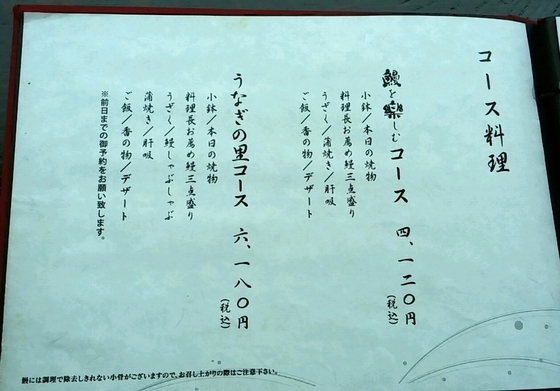 コース料理
鰻を楽しむコース 四、一二〇円(税込)
小鉢/本日の焼物
料理長お薦め鰻三点盛り
うざく/蒲焼き/肝吸
ご飯/香の物/デザート
うなぎの里コース 六、一八〇円(税込)
小鉢/本日の焼物
料理長お薦め鰻三点盛り
うざく/鰻しゃぶしゃぶ
蒲焼き/肝吸
ご飯/香の物/デザート
※前日までの御予約をお願い致します。
鰻には調理で除去しきれない小骨がございますので、お召し上がりの際はご注意下さい。